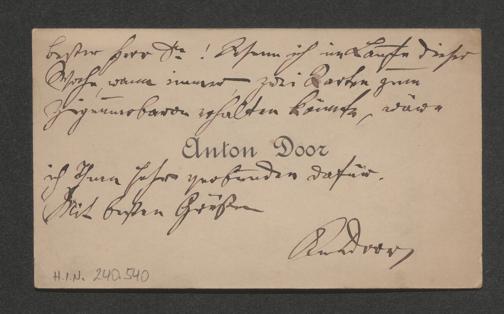 bester Herr Dr ! Wenn ich im Laufe dieser
Woche, wann immer, zwei Karten zum
Zigeunerbaron erhalten könnte, wäre
Anton Door
ich Ihnen sehr verbunden dafür.
Mit besten Grüßen
AntDoor
H.I.N. 240.540